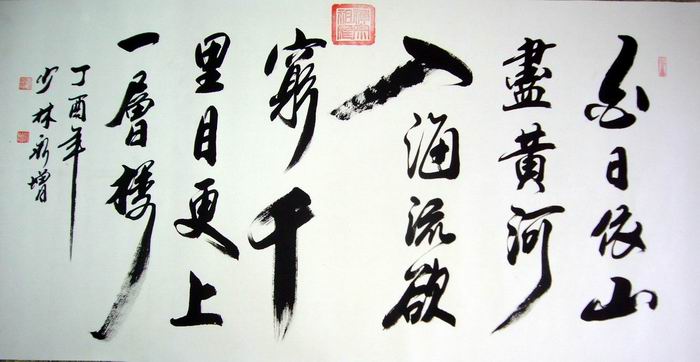 白日依山
盡黃河
入海流欲
窮千
里目更上
一層樓
丁酉年
少林
增